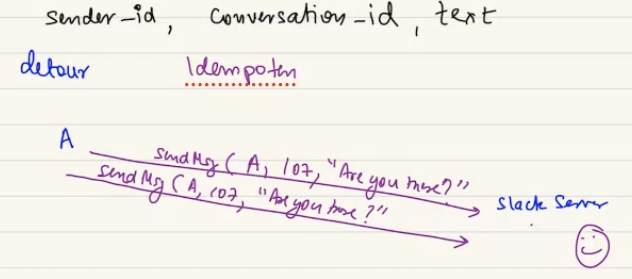 sender_id, conversation_id, text
detour Idempoten
A
sendMsg ( A, 107, "Are you there?"
sendMsg ( A, 107, "Are you there?"
Slack Server